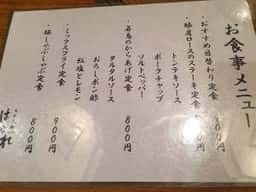 お食事メニュー
・おすすめ日替わり定食
・豚肩ロースのステーキ定食
トンテキソース
ポークチャップ
ソルトペッパー
・若鳥のからあげ定食 800円
タルタルソース
おろしポン酢
塩とレモン
・ミックスフライ定食 900円
・豚しゃぶしゃぶ定食 800円